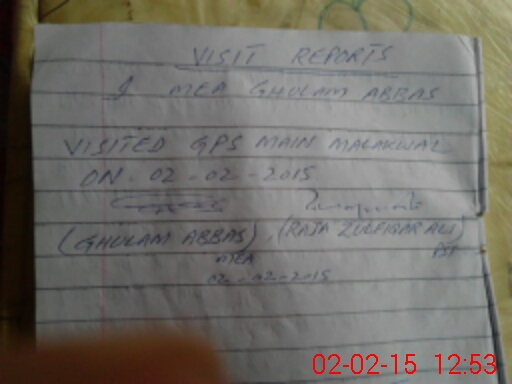 VISIT REPORTS
I MEA GHULAM ABBAS
VISITED GPS MAIN MALAKWAL
ON. 02-02-2015
(GHULAM ABBAS), (RAJA ZULFIQAR ALI)
MEA PST
02-02-2015
02-02-15 12:53